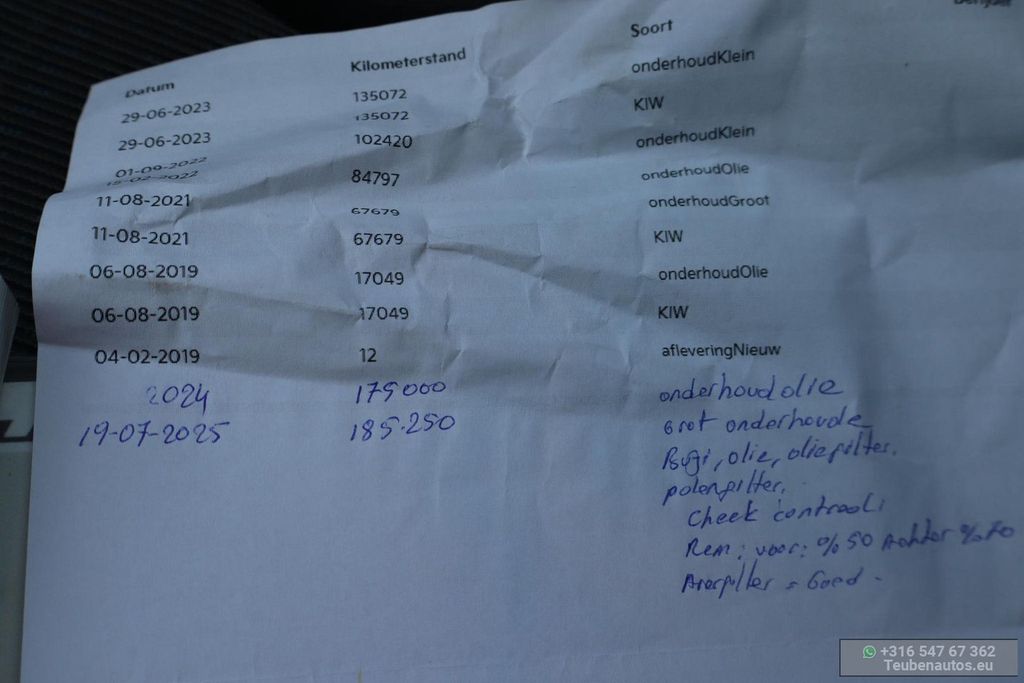 Datum Kilometerstand Soort
29-06-2023 135072 onderhoudKlein
29-06-2023 135072 KIW
01-09-2022 102420 onderhoudKlein
15-02-2022 84797 onderhoudOlie
11-08-2021 67679 onderhoudGroot
11-08-2021 67679 KIW
06-08-2019 17049 onderhoudOlie
06-08-2019 17049 KIW
04-02-2019 12 afleveringNieuw
2024 175000 onderhoud olie
19-07-2025 185.250 Grot onderhoude
Bugi, olie, oliefilter.
polenfilter.
Cheek controol:
Rem: voor: % 50 Achter %
= Goed -
+316 547 67 362
Teubenautos.eu